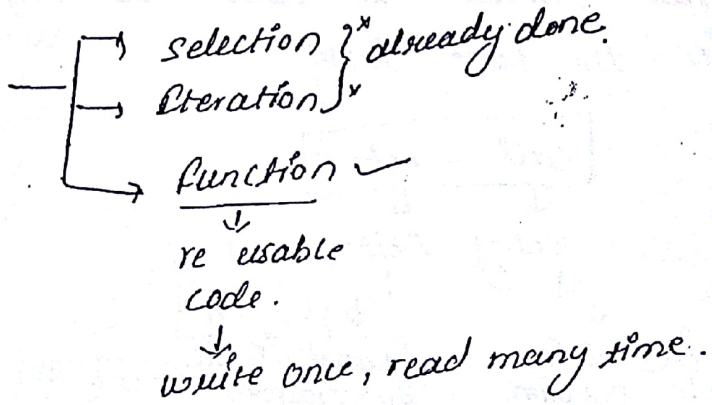 selection } already done.
Iteration }
function ✓
re usable
code.
write once, read many time.